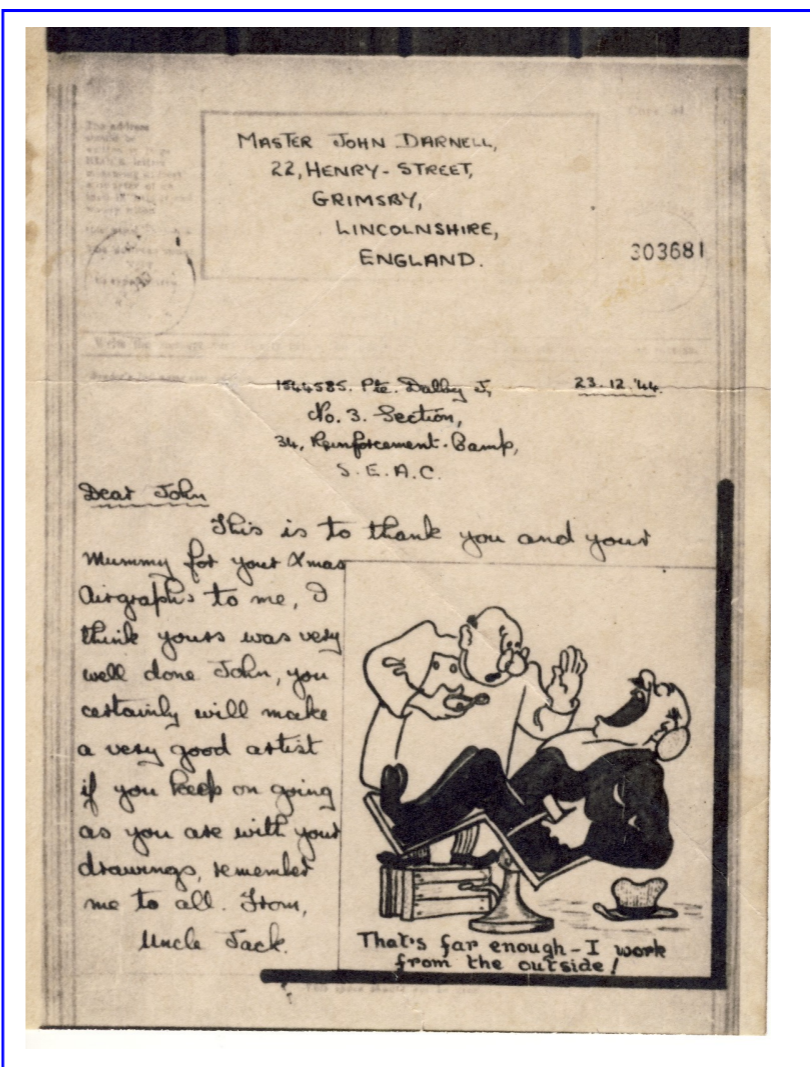 MASTER JOHN DARNELL,
22, HENRY-STREET,
GRIMSBY,
LINCOLNSHIRE,
ENGLAND.
303681
1544585. Pte. Dalby J,
23.12.'44.
No. 3. Section,
34, Reinforcement. Camp,
S.E.A.C.
Dear John
This is to thank you and your
Mummy for your Xmas
Airgraphs to me, I
think yours was very
well done John, you
certainly will make
a very good artist
if you keep on going
as you are with your
drawings, remember
me to all. From,
Uncle Jack.
That's far enough - I work
from the outside!